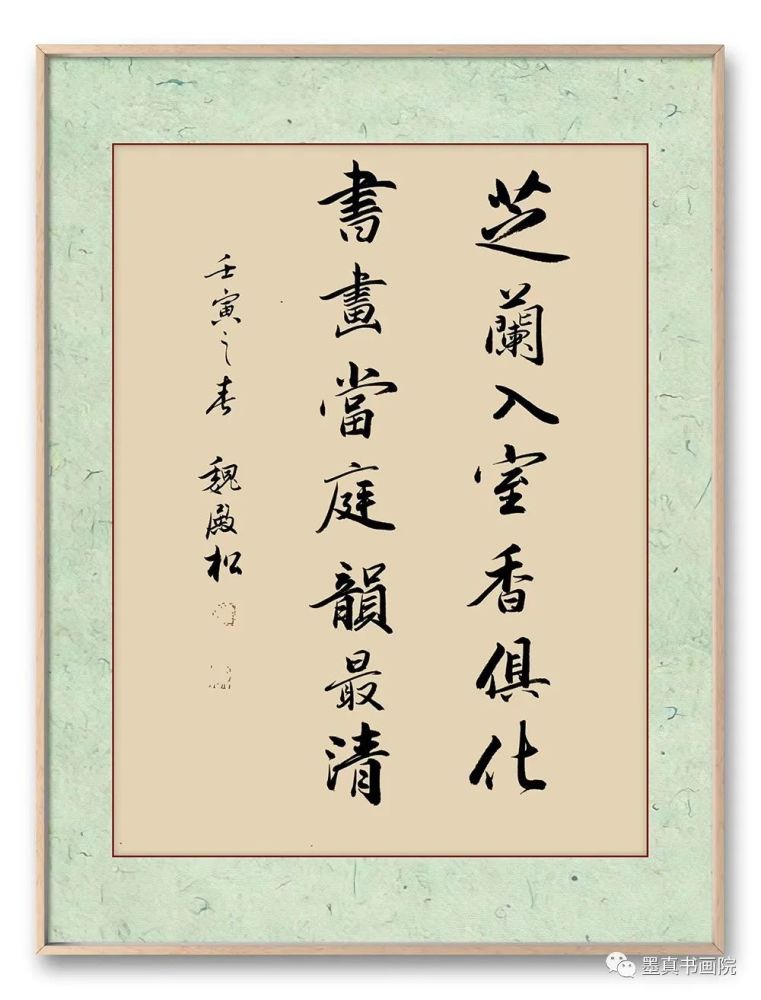 芝蘭入室香俱化
書畫當庭韻最清
壬寅之春 魏殿松
墨真书画院